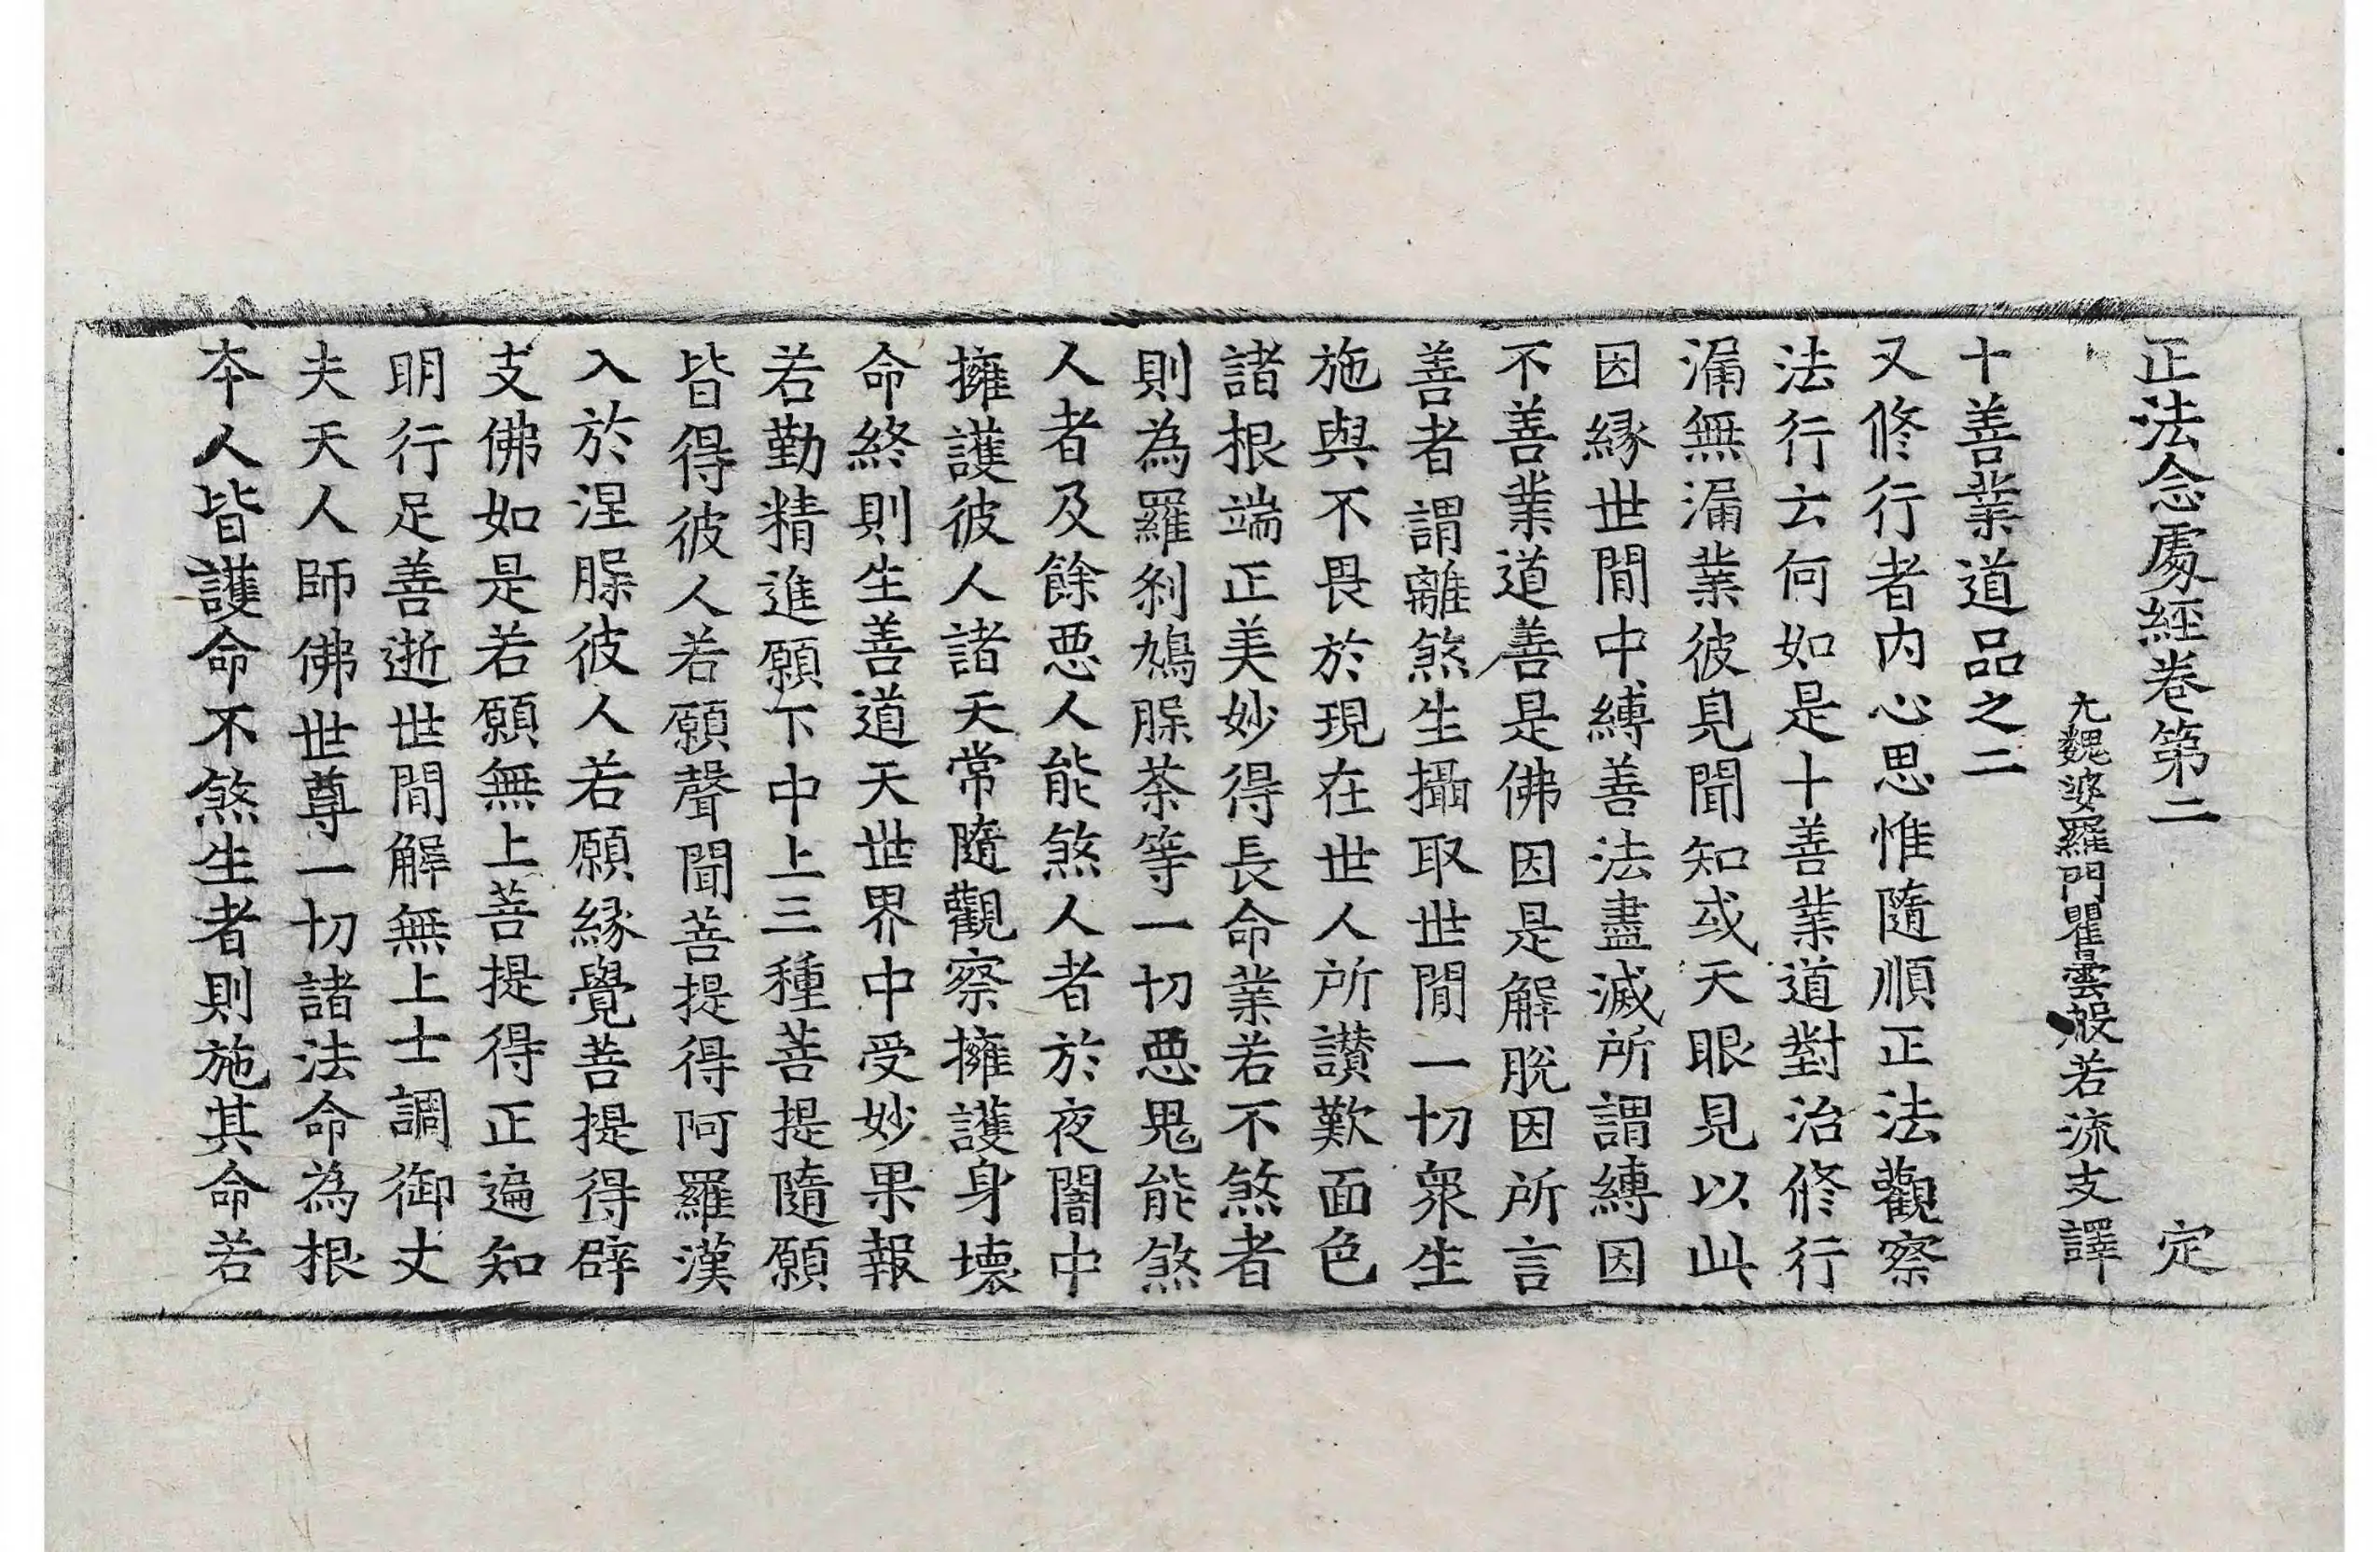 正法念處經卷第二 定
元魏婆羅門瞿曇般若流支譯
十善業道品之二
又修行者内心思惟隨順正法觀察
法行云何如是十善業道對治修行
漏無漏業彼見聞知或天眼見以此
因縁世間中縛善法盡滅所謂縛因
不善業道善是佛因是解脫因所言
善者謂離煞生攝取世間一切衆生
施與不畏於現在世人所讃歎面色
諸根端正美妙得長命業若不煞者
則為羅刹鳩腂茶等一切惡鬼能煞
人者及餘惡人能煞人者於夜闇中
擁護彼人諸天常隨觀察擁護身壞
命終則生善道天世界中受妙果報
若勤精進願下中上三種菩提隨願
皆得彼人若願聲聞菩提得阿羅漢
入於涅腂彼人若願縁覺菩提得辟
支佛如是若願無上菩提得正遍知
明行足善逝世間解無上士調御丈
夫天人師佛世尊一切諸法命為根
夲人皆護命不煞生者則施其命若